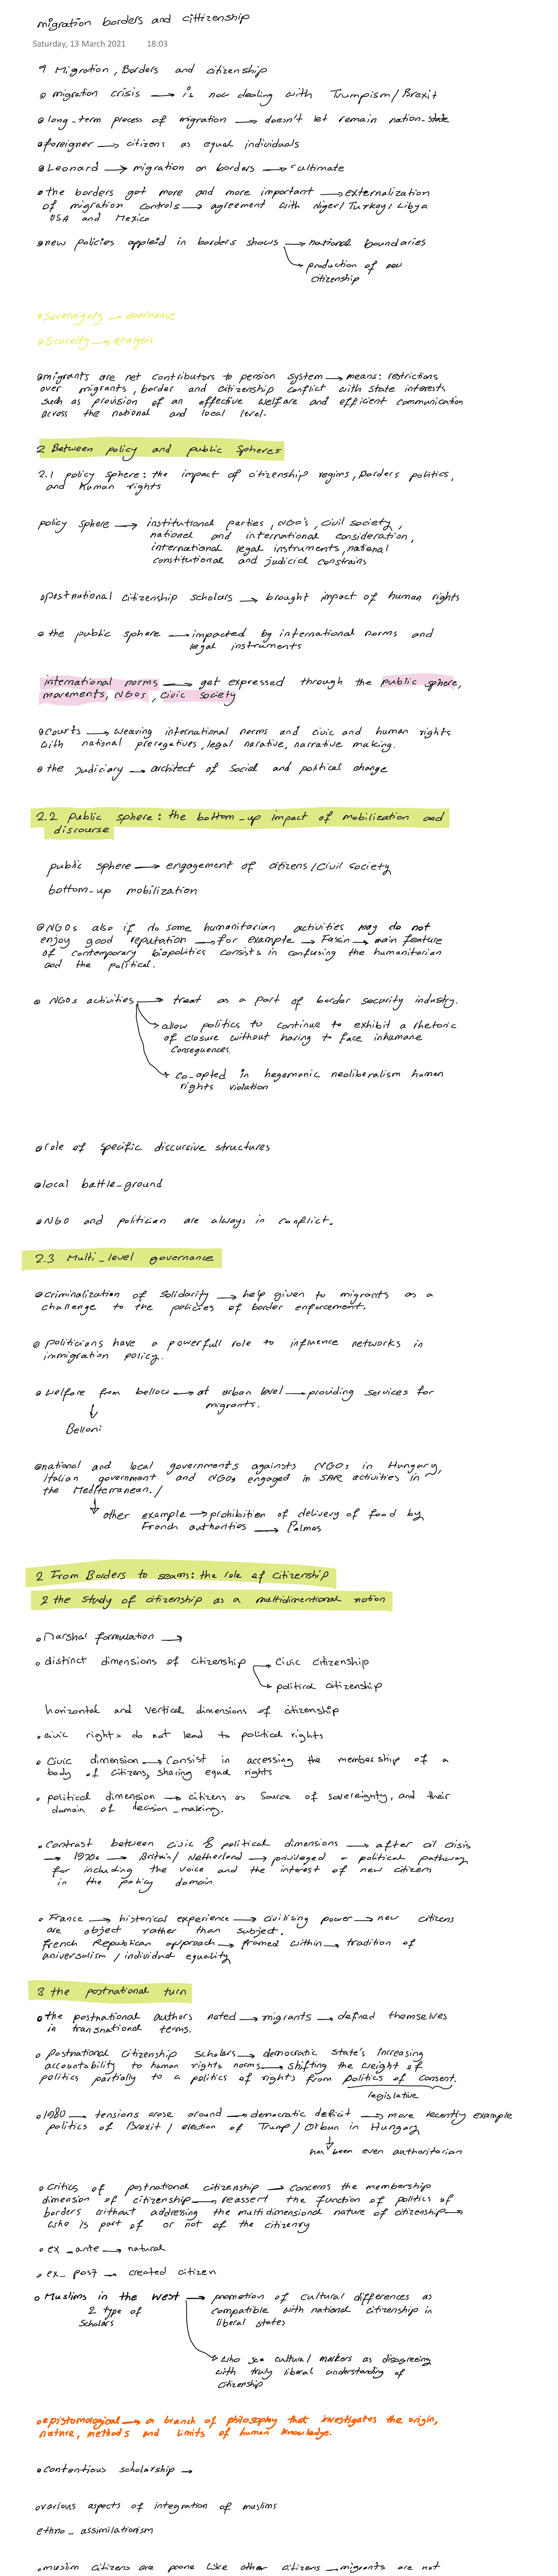 migration borders and cittizenship
Saturday, 13 March 2021 18:03
9 Migration, Borders and citizenship
migration crisis → is now dealing with Trumpism/Brexit
long-term process of migration → doesn't let remain nation-state
foreigner → citizens as equal individuals
Leonard → migration on borders → cultimate
the borders got more and more important → externalization
of migration controls → agreement with Niger/Turkey/Libya
USA and Mexico
new policies appleid in borders shows → national boundaries
→ production of new
citizenship
Sovereignty → dominance
Scurnity → analysis
migrants are net contributors to pension system → means: restrictions
over migrants, border and citizenship conflict with state interests
such as provision of an effective welfare and efficient communication
across the national and local level.
2 Between policy and public Spheres
2.1 policy sphere: the impact of citizenship regims, borders politics,
and human rights
policy sphere → institutional parties, NGO's, civil society,
national and international consideration,
international legal instruments, national
constitutional and judicial constrains
postnational citizenship scholars → brought impact of human rights
the public sphere → impacted by international norms and
legal instruments
international norms → get expressed through the public sphere,
movements, NGOs, civic society
courts → weaving international norms and civic and human rights
with national preregatives, legal narative, narrative making.
the judiciary → architect of Social and political change
2.2 public sphere: the bottom-up impact of mobilization and
discourse
public sphere → engagement of citizens/civil society
bottom-up mobilization
NGOs also if do some humanitarian activities may do not
enjoy good reputation → for example → Fassin → main feature
of contemporary biopolitics consists in confusing the humanitarian
and the political.
NGOs activities → treat as a part of border security industry.
→ allow politics to continue to exhibit a rhetoric
of closure without having to face inhumane
consequences.
→ co-opted in hegemonic neoliberalism human
rights violation
role of specific discursive structures
local battle-ground
NGO and politician are always in conflict.
2.3 Multi-level governance
criminalization of Solidarity → help given to migrants as a
challenge to the policies of border enforcement.
politicians have a powerfull role to influence networks in
immigration policy.
welfare from bellow → at urban level → providing services for
migrants.
↓
Belloni
national and local governments againsts NGOs in Hungury,
italian government and NGOs engaged in SAR activities in
the Mediterranean. /
↓ other example → prohibition of delivery of food by
French authorities → Palmas
2 From Borders to seams: the role of citizenship
2 the study of citizenship as a multidimentional notion
Marshal formulation →
distinct dimensions of citizenship → civic citizenship
→ political citizenship
horizontal and vertical dimensions of citizenship
civic rights do not lead to political rights
Civic dimension → consist in accessing the membership of a
body of citizens, sharing equal rights
political dimension → citizens as source of sovereignty, and their
domain of decision-making.
Contrast between civic & political dimensions → after oil crisis
→ 1970s → Britain/Netherland → privileged a political pathway
for including the voice and the interest of new citizens
in the policy domain.
France → historical experience → civilising power → new citizens
are object rather than subject.
french Republican approach → framed within → tradition of
universalism / individual equality
3 the postnational turn
the postnational authors noted → migrants → defined themselves
in transnational terms.
Postnational citizenship scholars → democratic state's increasing
accountability to human rights norms → shifting the weight of
politics partially to a politics of rights from politics of consent.
legislative
1980 → tensions arose around → democratic deficit → more recently example
politics of Brexit / election of Trump / Orban in Hungary
↓
has been even authoritarian
critics of postnational citizenship → concerns the membership
dimension of citizenship → reassert the function of politics of
borders without addressing the multidimensional nature of citizenship →
who is part of or not of the citizenry
ex_ante → natural
ex_post → created citizen
Muslims in the west → promotion of cultural differences as
2 type of compatible with national citizenship in
scholars liberal states
→ who see cultural markers as disagreeing
with truly liberal understanding of
citizenship
epistomological → a branch of philosophy that investigates the origin,
nature, methods and limits of human knowledge.
contentious scholarship →
various aspects of integration of muslims
ethno_assimilationism
muslim citizens are prone like other citizens → migrants are not